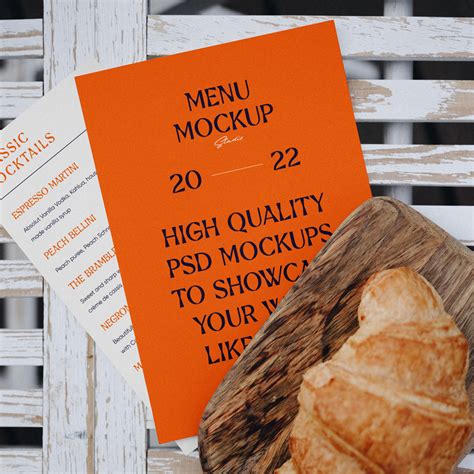 MENU
MOCKUP
Studio
20 — 22
HIGH QUALITY
PSD MOCKUPS
TO SHOWCA
YOUR W
LIKE
ASSIC
OCKTAILS
ESPRESSO MARTINI
Absolut Vanilla Vodka, Kahlua, house
made vanilla syrup
PEACH BELLINI
Peach puree, Peach Schn
THE BRAMBLE
Sweet and sharp
crème de cassis
NEGRON